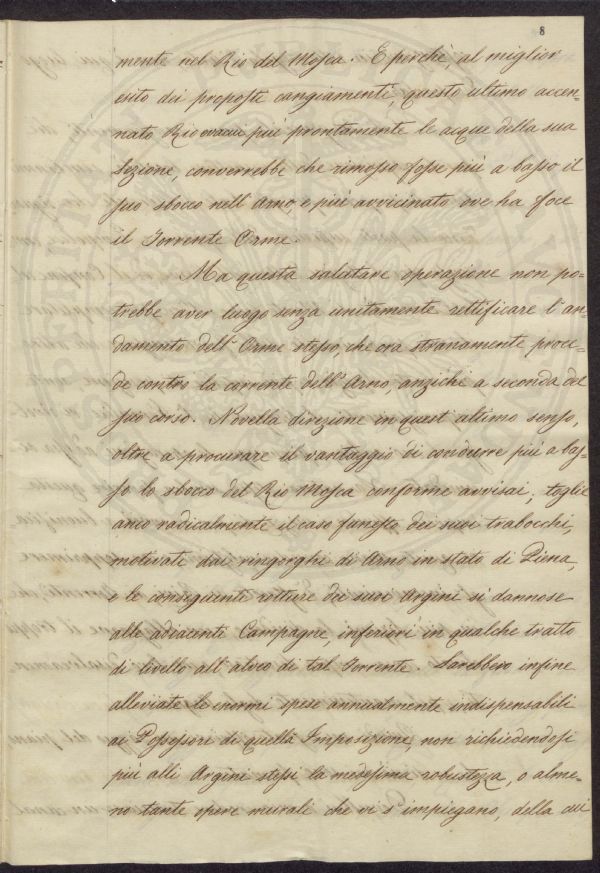 8
mente nel Rio del Mosca. E perchè, al miglior
esito dei proposti cangiamenti, questo ultimo accen=
nato Rio evacui più prontamente le acque della sua
Sezione, converrebbe che rimosso fosse più a basso il
suo sbocco nell'Arno, e più avvicinato ove ha foce
il Torrente Orme.
Ma questa salutare operazione non po=
trebbe aver luogo senza unitamente rettificare l'an=
damento dell'Orme stesso, che ora stranamente proce=
de contro la corrente dell'Arno, anzichè a seconda del
suo corso. Novella direzione in quest'ultimo senso,
oltre a procurare il vantaggio di condurre più a bas=
so lo sbocco del Rio Mosca conforme avvisai, toglie
anco radicalmente il caso funesto dei suoi trabocchi,
motivate dai ringorghi di Arno in stato di Piena,
e le conseguente rotture dei suoi Argini sì dannose
alle adiacenti Campagne, inferiori in qualche tratto
di livello all'alveo di tal Torrente. Sarebbero infine
alleviate le enormi spese annualmente indispensabili
ai Possessori di quella Imposizione, non richiedendosi
più alli Argini stessi la medesima robustezza, o alme=
no tante opere murali che vi s'impiegano, della cui